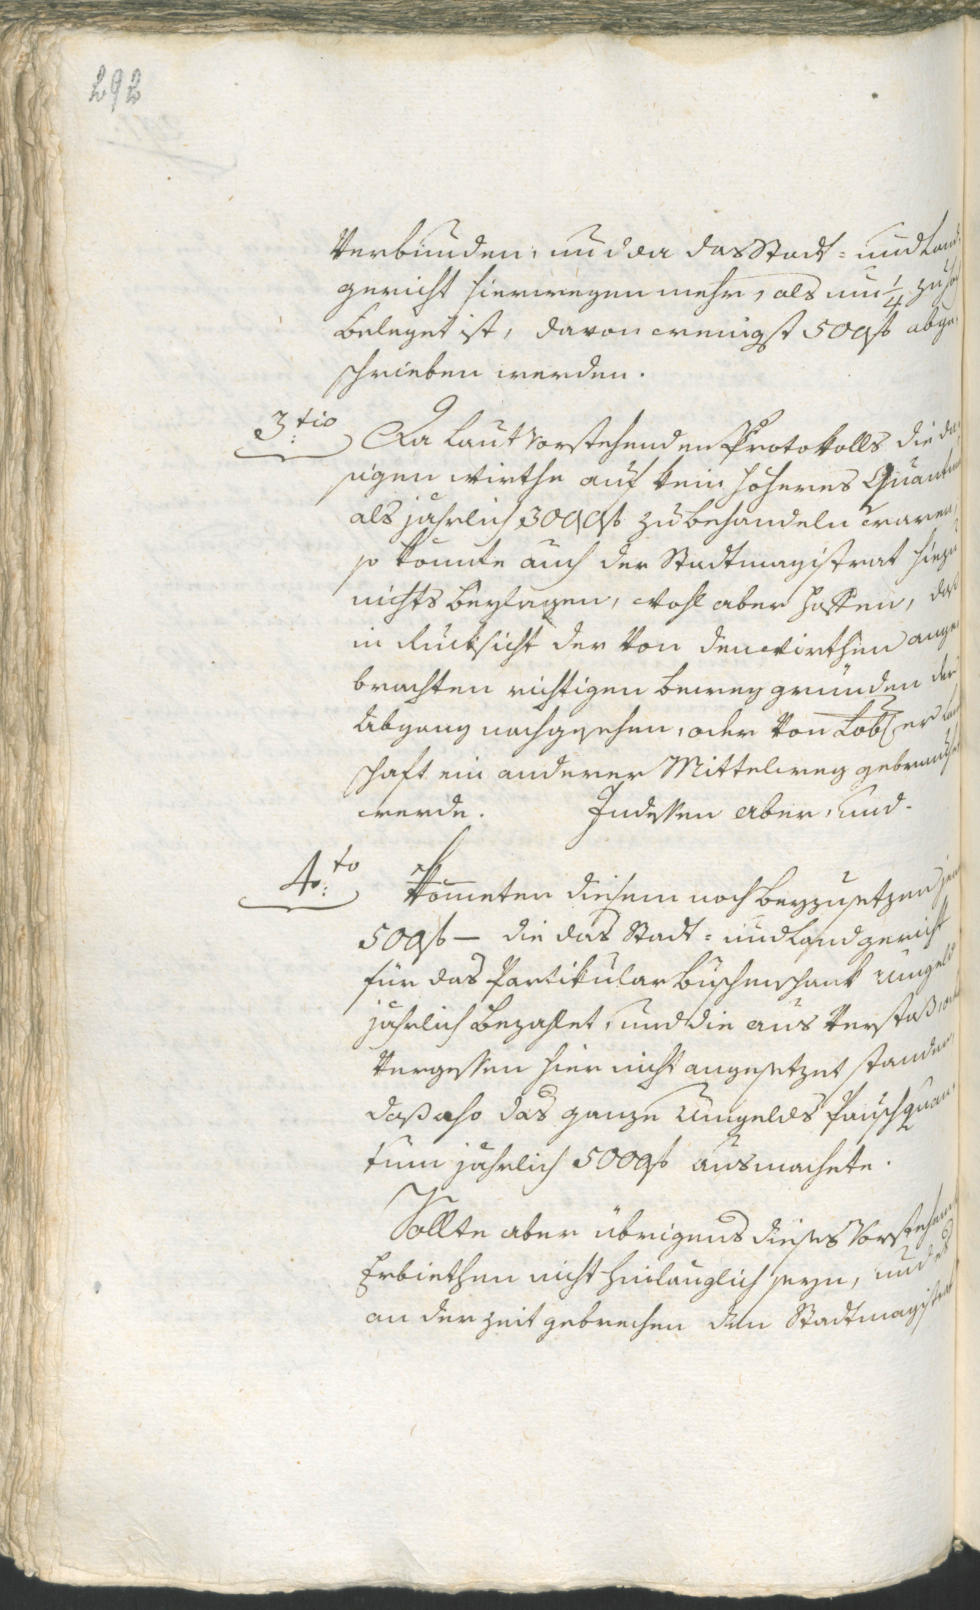 292
verbunden, und da das Stadt= und Land-
gericht hierwegen mehr, als um 1/4 zu hoch
beleget ist, davon wenigst 50 f abge-
schrieben werden.
3:tio Da laut vorstehenden Protokolls die da-
sigen Wirthe auf kein höheres Quantum
als jährlich 300 f zu behandeln waren,
so konnte auch der Stadtmagistrat hiezu
nichts beytragen, wohl aber hoffen, daß
in Rücksicht der von den Wirthen ange-
brachten wichtigen Beweggründen der
Abgang nachgesehen, oder von Löbl:er Land-
schaft ein anderer Mittelweg gebrauchet
werde. Indessen aber, und
4:to kommeten diesem noch beyzusetzen jene
50 f — die das Stadt= und Landgericht
für das Partikular Buschenschank Umgeld
jährlich bezahlet, und die aus Verstoß, oder
Vergessen hier nicht angesetzet standen,
daß also das ganze Umgelds Pauschquan-
tum jährlich 500 f ausmachete.
Sollte aber übrigens dieses vorstehende
Erbiethen nicht hinlänglich seyn, und es
an der Zeit gebrechen den Stadtmagistrat